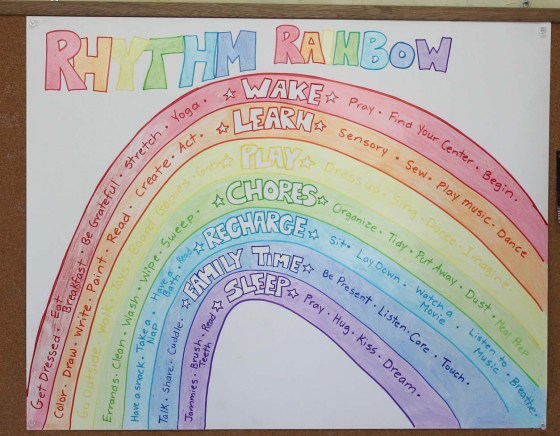 RHYTHM RAINBOW
Get Dressed · Eat Breakfast · Be Grateful · Stretch · Yoga · WAKE Pray · Find Your Center · Begin ·
Color · Draw · Write · Paint · Read · Create · Act · LEARN Sensory · Sew · Play music · Dance
Go Outside · Walk · Toys · Board Games · PLAY Dress up · Sing · Imagine
Errands · Clean · Wash · Wipe · Sweep · CHORES Organize · Tidy · Put Away · Dust · Meal Prep
Have a snack · Take a Nap · Have a Bath · Read RECHARGE Sit · Lay Down · Watch a Movie · Listen to Music · Breathe ·
Talk · Share · Cuddle · FAMILY TIME Be Present · Listen · Care · Touch ·
Jammies · Brush Teeth · Read SLEEP Pray · Hug · Kiss · Dream ·